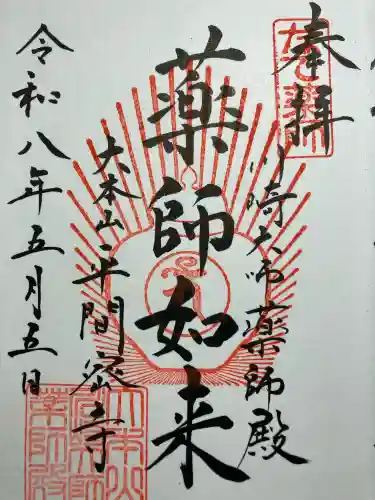 奉拝
川崎大師薬師殿
薬師如来
大本山平間密寺
令和八年五月五日